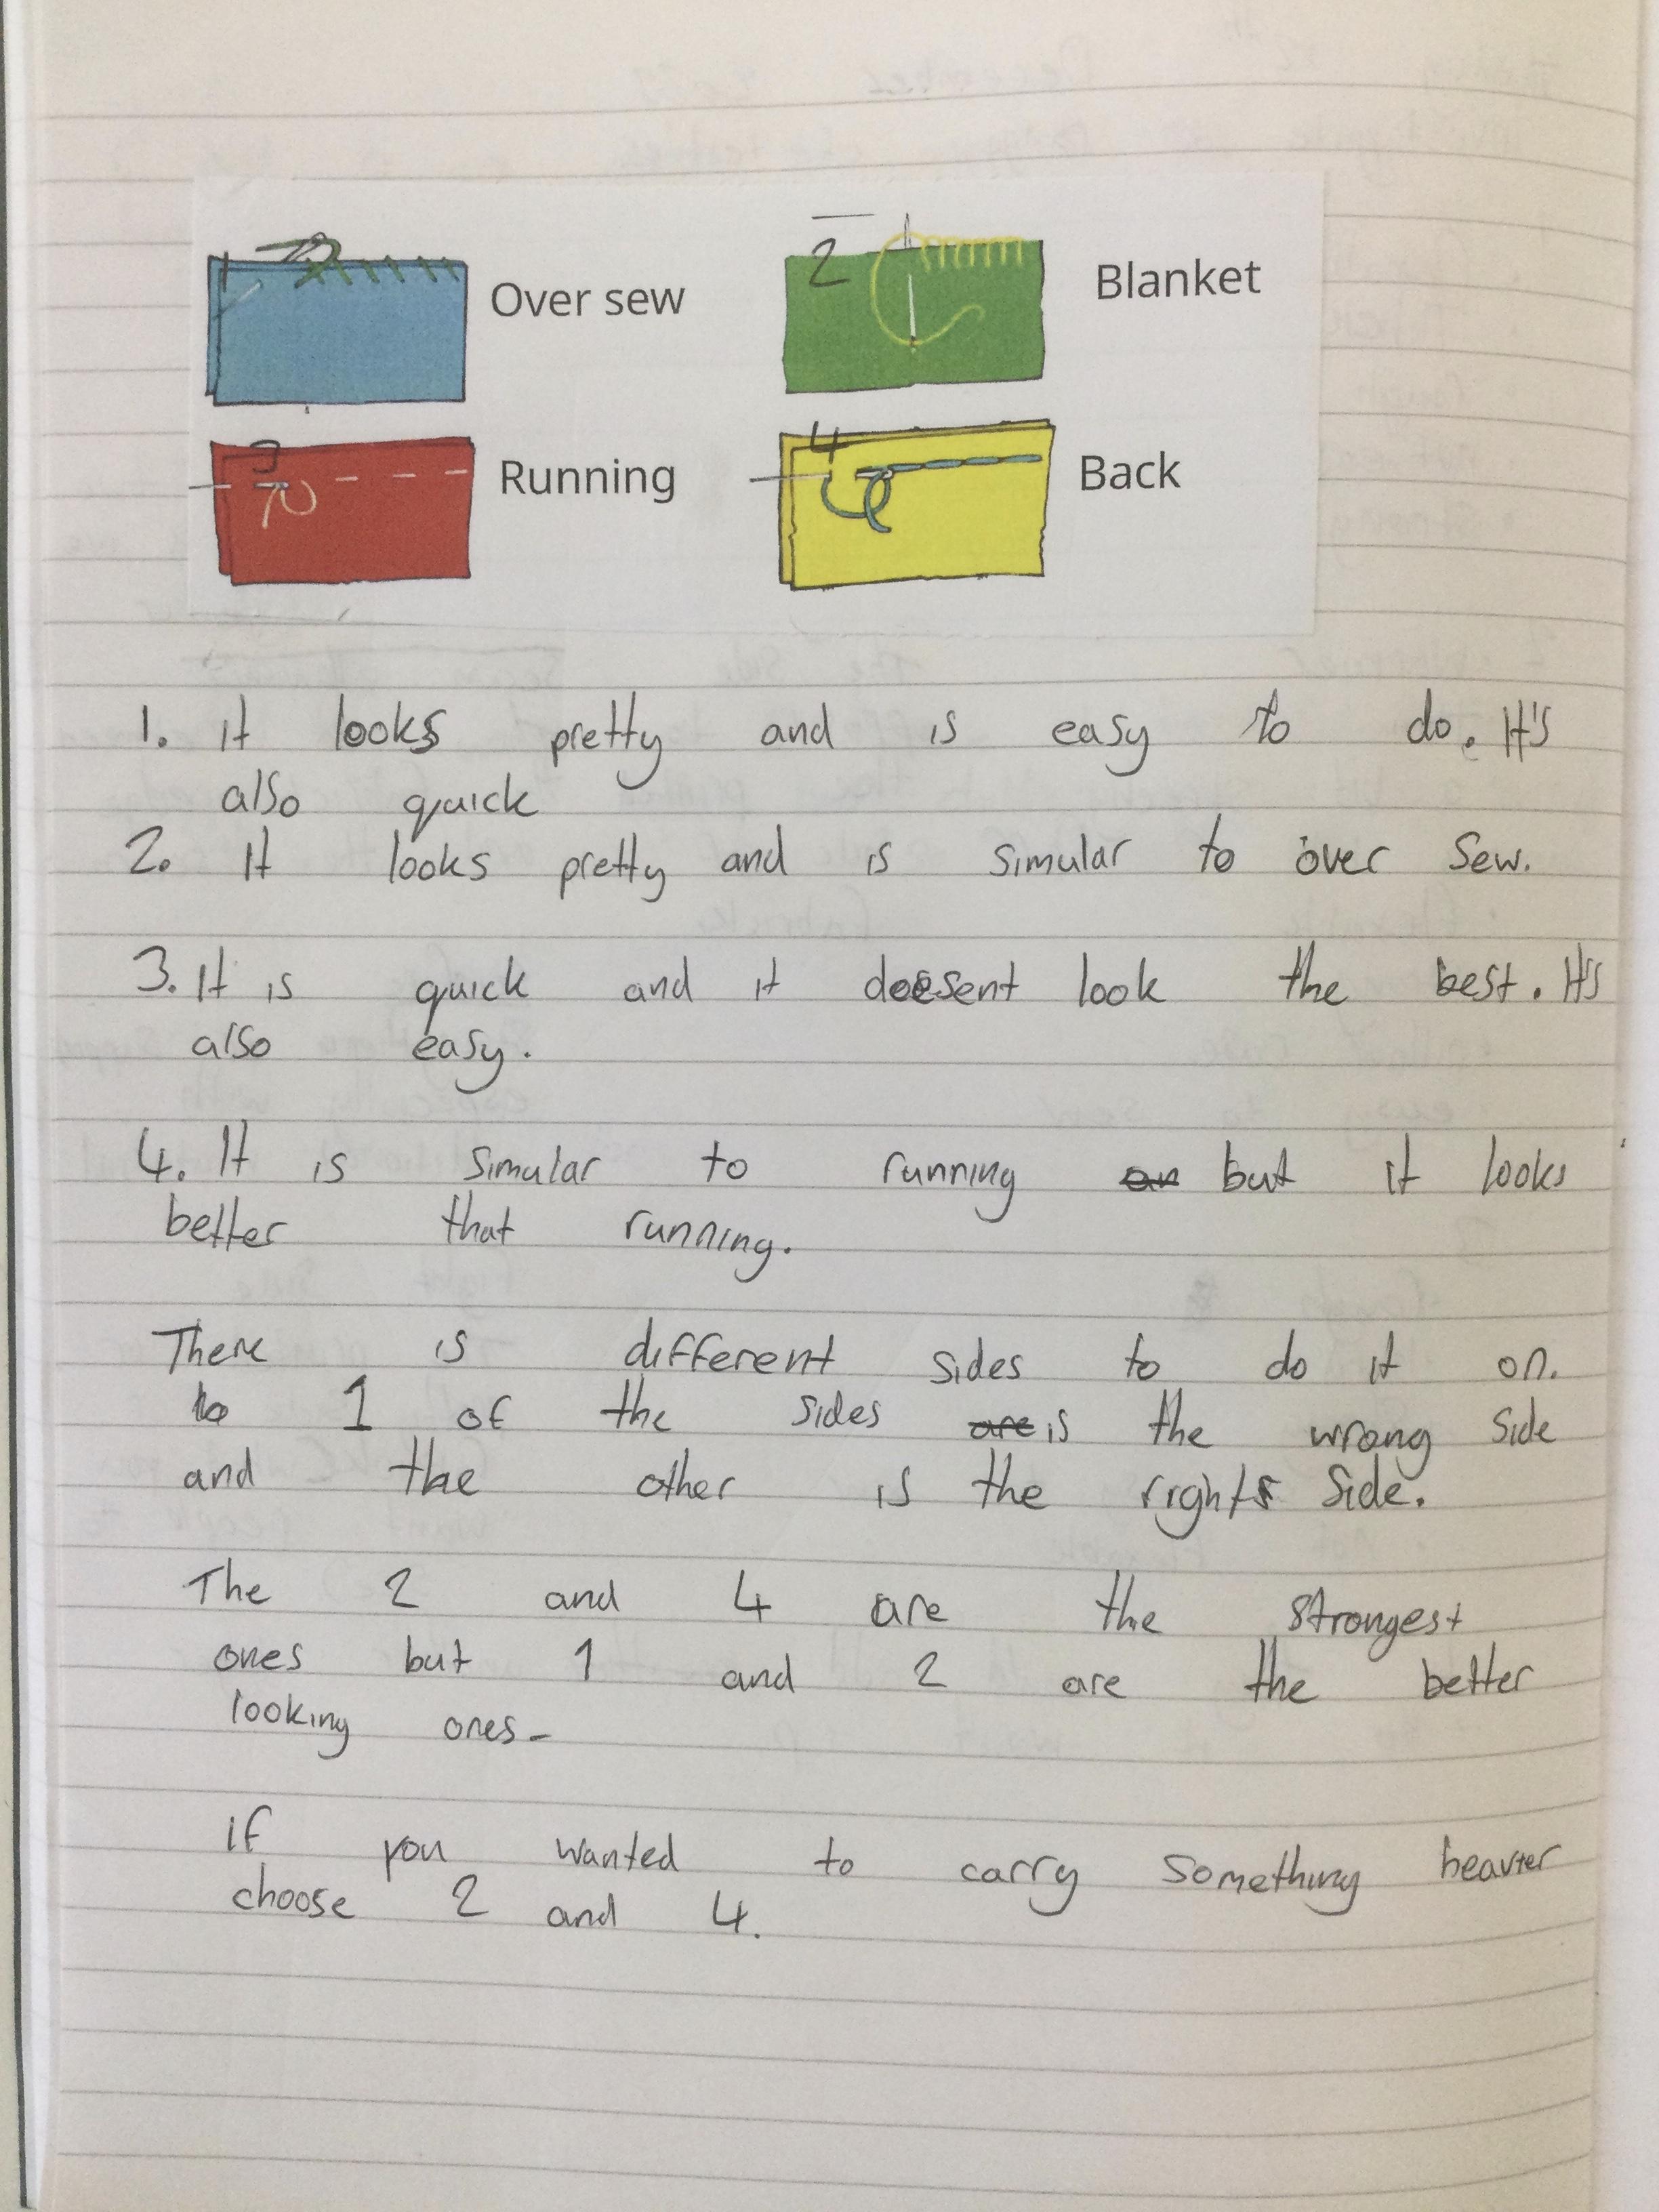 1 Over sew
2 Blanket
3 Running
4 Back
1. It looks pretty and is easy to do. It's
also quick
2. It looks pretty and is simular to over sew.
3. It is quick and it doesent look the best. It's
also easy.
4. It is simular to running an but it looks
better that running.
There is different sides to do it on.
1 of the sides are is the wrong side
and the other is the right side.
The 2 and 4 are the strongest
ones but 1 and 2 are the better
looking ones.
If you wanted to carry something heavier
choose 2 and 4.